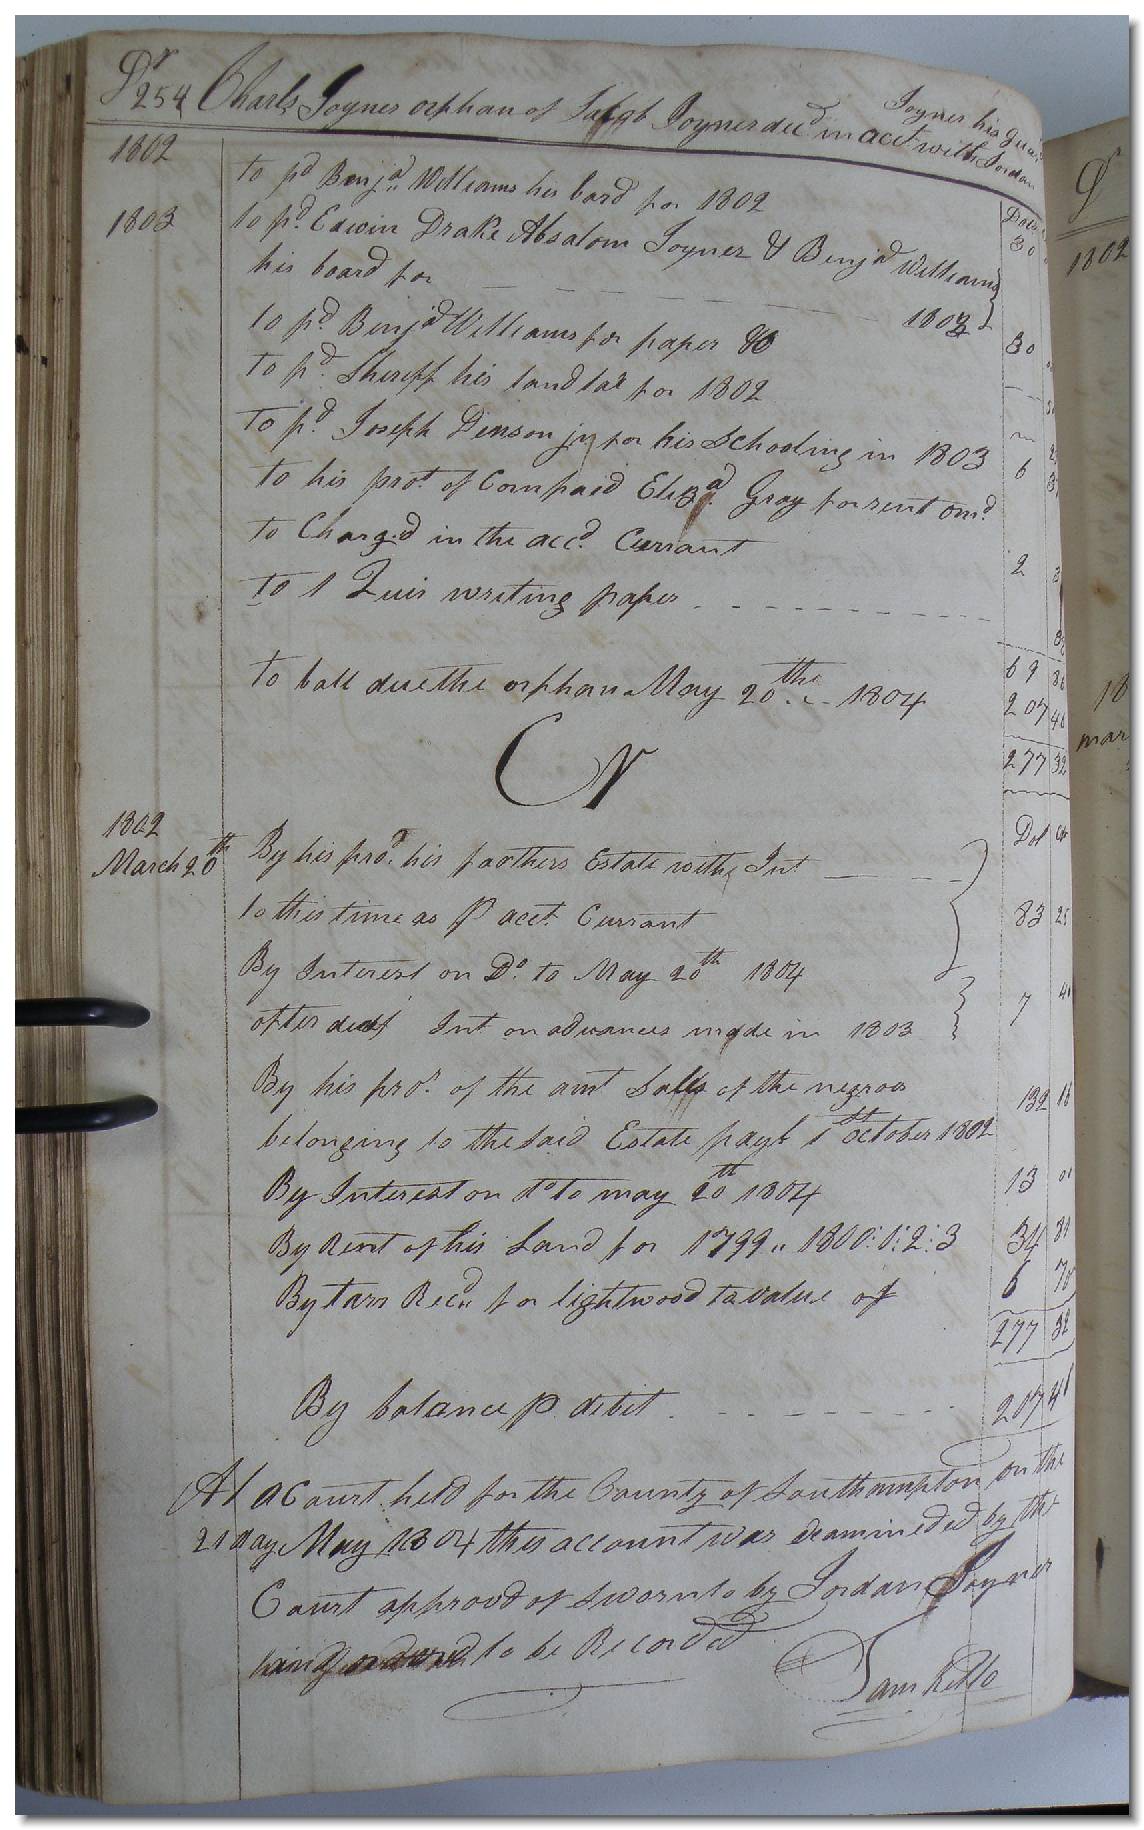 Dr
254 Charls Joyner orphan of Jacob Joyner decd in acct with Jordan
Joyner his guar
1802
to pd Benja Williams his bord for 1802
Dols
30
1803
to pd Edwin Drake Absalom Joyner & Benja Williams
his board for 1803
30
to pd Benja Williams for paper &c
to pd Sheriff his land tax for 1802
to pd Joseph Denson jr for his Schooling in 1803
6
to his prot of Corn paid Elizd Gray for rent omd
to Charged in the accd Currant
2
to 1 Quir writing paper
69 86
to ball due the orphan May 20th 1804
207 46
277 32
Cr
Dol Cts
1802
March 20th
By his prot his farthers Estate with Int
to this time as P acct Currant
83 25
By Interest on Do to May 20th 1804
after dedt Int on advances made in 1803
7
By his prot of the amt Sales of the negroes
belonging to the said Estate payb 1st October 1802
132 16
By Interest on do to may 20th 1804
13
By Rent of his Land for 1799 " 1800:1:2:3
34
By tarr Recd for lightwood to value of
6 70
277 32
By balance P debit
207 46
At a Court held for the County of Southampton on the
21 day May 1804 this account was examineded by the
Court approvd of sworn to by Jordan Joyner
and ordered to be Recorded
Sam Kello
18
mar
1802